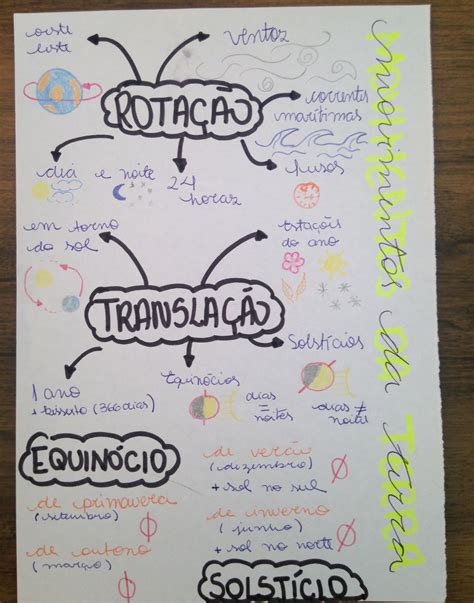 MOVIMENTOS DA TERRA
movimentos da terra
oeste
leste
ventos
ROTAÇÃO
correntes
marítimas
dia e noite
24
horas
fusos
em torno
do sol
estações
do ano
TRANSLAÇÃO
Solstícios
1 ano
+ bissexto (366 dias)
Equinócios
dias
=
noites
dias ≠
noites
EQUINÓCIO
de primavera
(setembro)
de outono
(março)
de verão
(dezembro)
+ sol no sul
de inverno
(junho)
+ sol no norte
SOLSTÍCIO